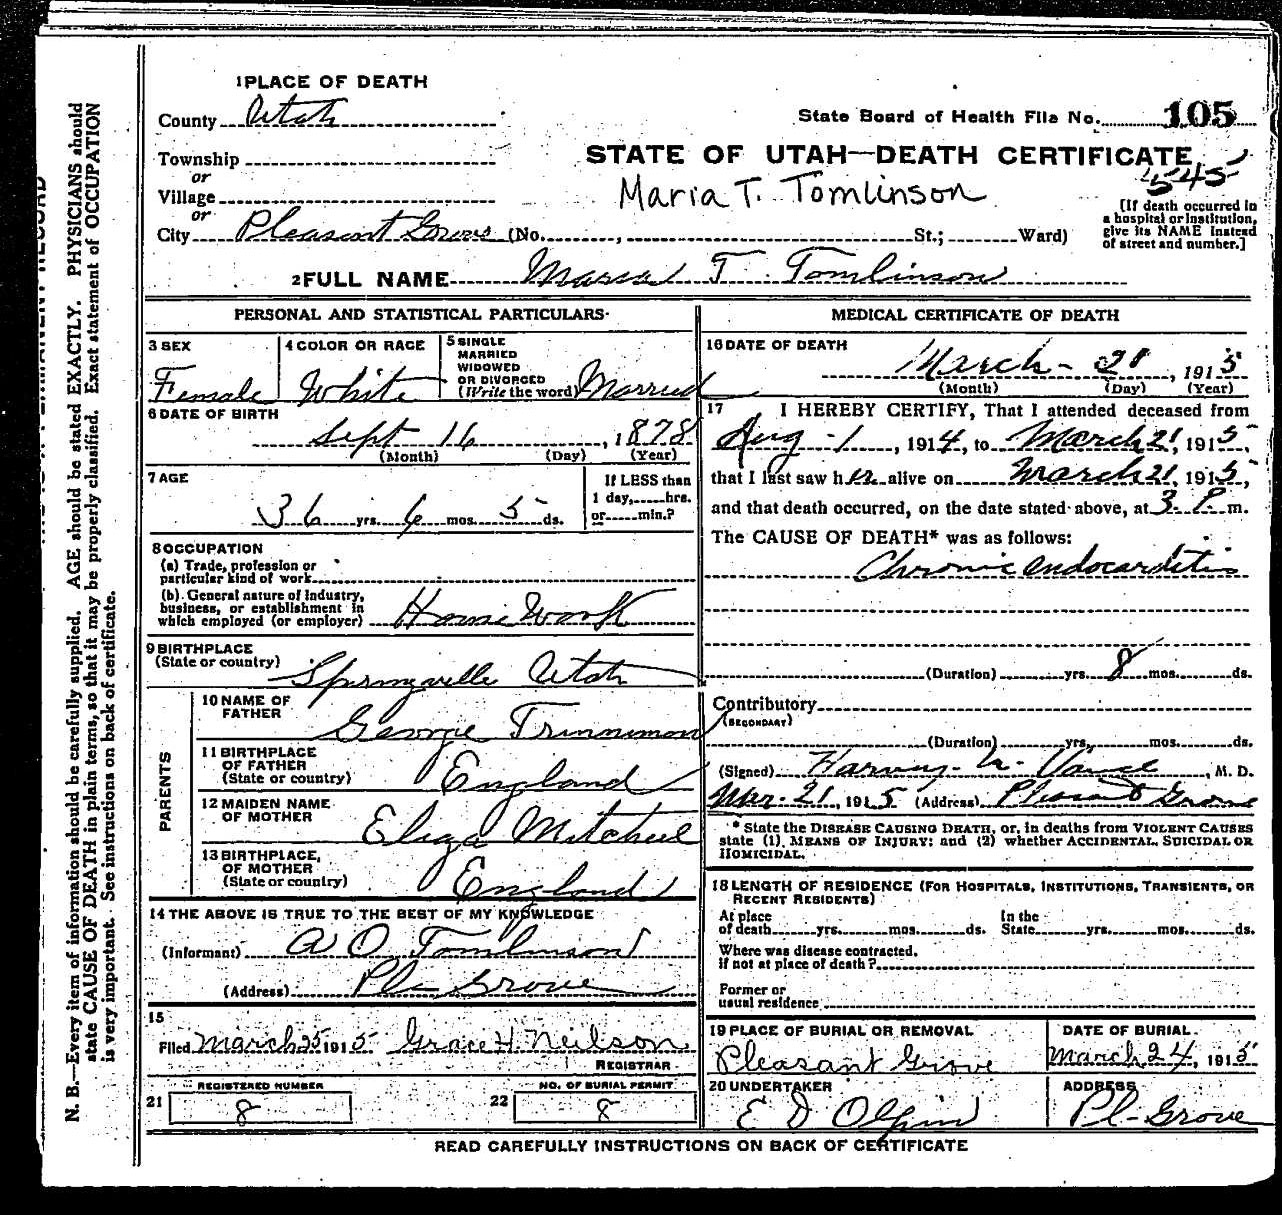 1 PLACE OF DEATH
County Utah
State Board of Health File No. 105
Township
or
Village
or
City Pleasant Grove (No. , St.; Ward)
STATE OF UTAH—DEATH CERTIFICATE
545
Maria T. Tomlinson
[If death occurred in
a hospital or institution,
give its NAME instead
of street and number.]
2 FULL NAME Maria T. Tomlinson
PERSONAL AND STATISTICAL PARTICULARS
3 SEX
Female
4 COLOR OR RACE
White
5 SINGLE
MARRIED
WIDOWED
OR DIVORCED
(Write the word) Married
6 DATE OF BIRTH
Sept 16, 1878
(Month) (Day) (Year)
7 AGE
36 yrs. 6 mos. 5 ds.
If LESS than
1 day, hrs.
or min.?
8 OCCUPATION
(a) Trade, profession or
particular kind of work
(b) General nature of Industry,
business, or establishment in
which employed (or employer) House Work
9 BIRTHPLACE
(State or country) Springville Utah
PARENTS
10 NAME OF
FATHER
George
11 BIRTHPLACE
OF FATHER
(State or country) England
12 MAIDEN NAME
OF MOTHER
Eliza Mitchell
13 BIRTHPLACE,
OF MOTHER
(State or country) England
14 THE ABOVE IS TRUE TO THE BEST OF MY KNOWLEDGE
(Informant) A O Tomlinson
(Address) Pl- Grove
15
Filed March 25 1915 Grace H. Neilson
REGISTRAR
REGISTERED NUMBER
21 8
NO. OF BURIAL PERMIT
22 8
MEDICAL CERTIFICATE OF DEATH
16 DATE OF DEATH
March - 21, 1915
(Month) (Day) (Year)
17 I HEREBY CERTIFY, That I attended deceased from
Aug - 1, 1914, to March 21, 1915,
that I last saw her alive on March 21, 1915,
and that death occurred, on the date stated above, at 3 P. m.
The CAUSE OF DEATH* was as follows:
Chronic endocarditis
(Duration) yrs. 8 mos. ds.
Contributory
(SECONDARY)
(Duration) yrs. mos. ds.
(Signed) Harvey Vance, M. D.
Mar. 21, 1915 (Address) Pleasant Grove
* State the DISEASE CAUSING DEATH, or, in deaths from VIOLENT CAUSES
state (1) MEANS OF INJURY; and (2) whether ACCIDENTAL, SUICIDAL OR
HOMICIDAL.
18 LENGTH OF RESIDENCE (FOR HOSPITALS, INSTITUTIONS, TRANSIENTS, OR
RECENT RESIDENTS)
At place
of death yrs. mos. ds.
In the
State yrs. mos. ds.
Where was disease contracted,
If not at place of death?
Former or
usual residence
19 PLACE OF BURIAL OR REMOVAL
Pleasant Grove
DATE OF BURIAL
March 24, 1915
20 UNDERTAKER
E D Olpin
ADDRESS
Pl- Grove
READ CAREFULLY INSTRUCTIONS ON BACK OF CERTIFICATE
N. B.—Every item of information should be carefully supplied. AGE should be stated EXACTLY. PHYSICIANS should
state CAUSE OF DEATH in plain terms, so that it may be properly classified. Exact statement of OCCUPATION
is very important. See instructions on back of certificate.